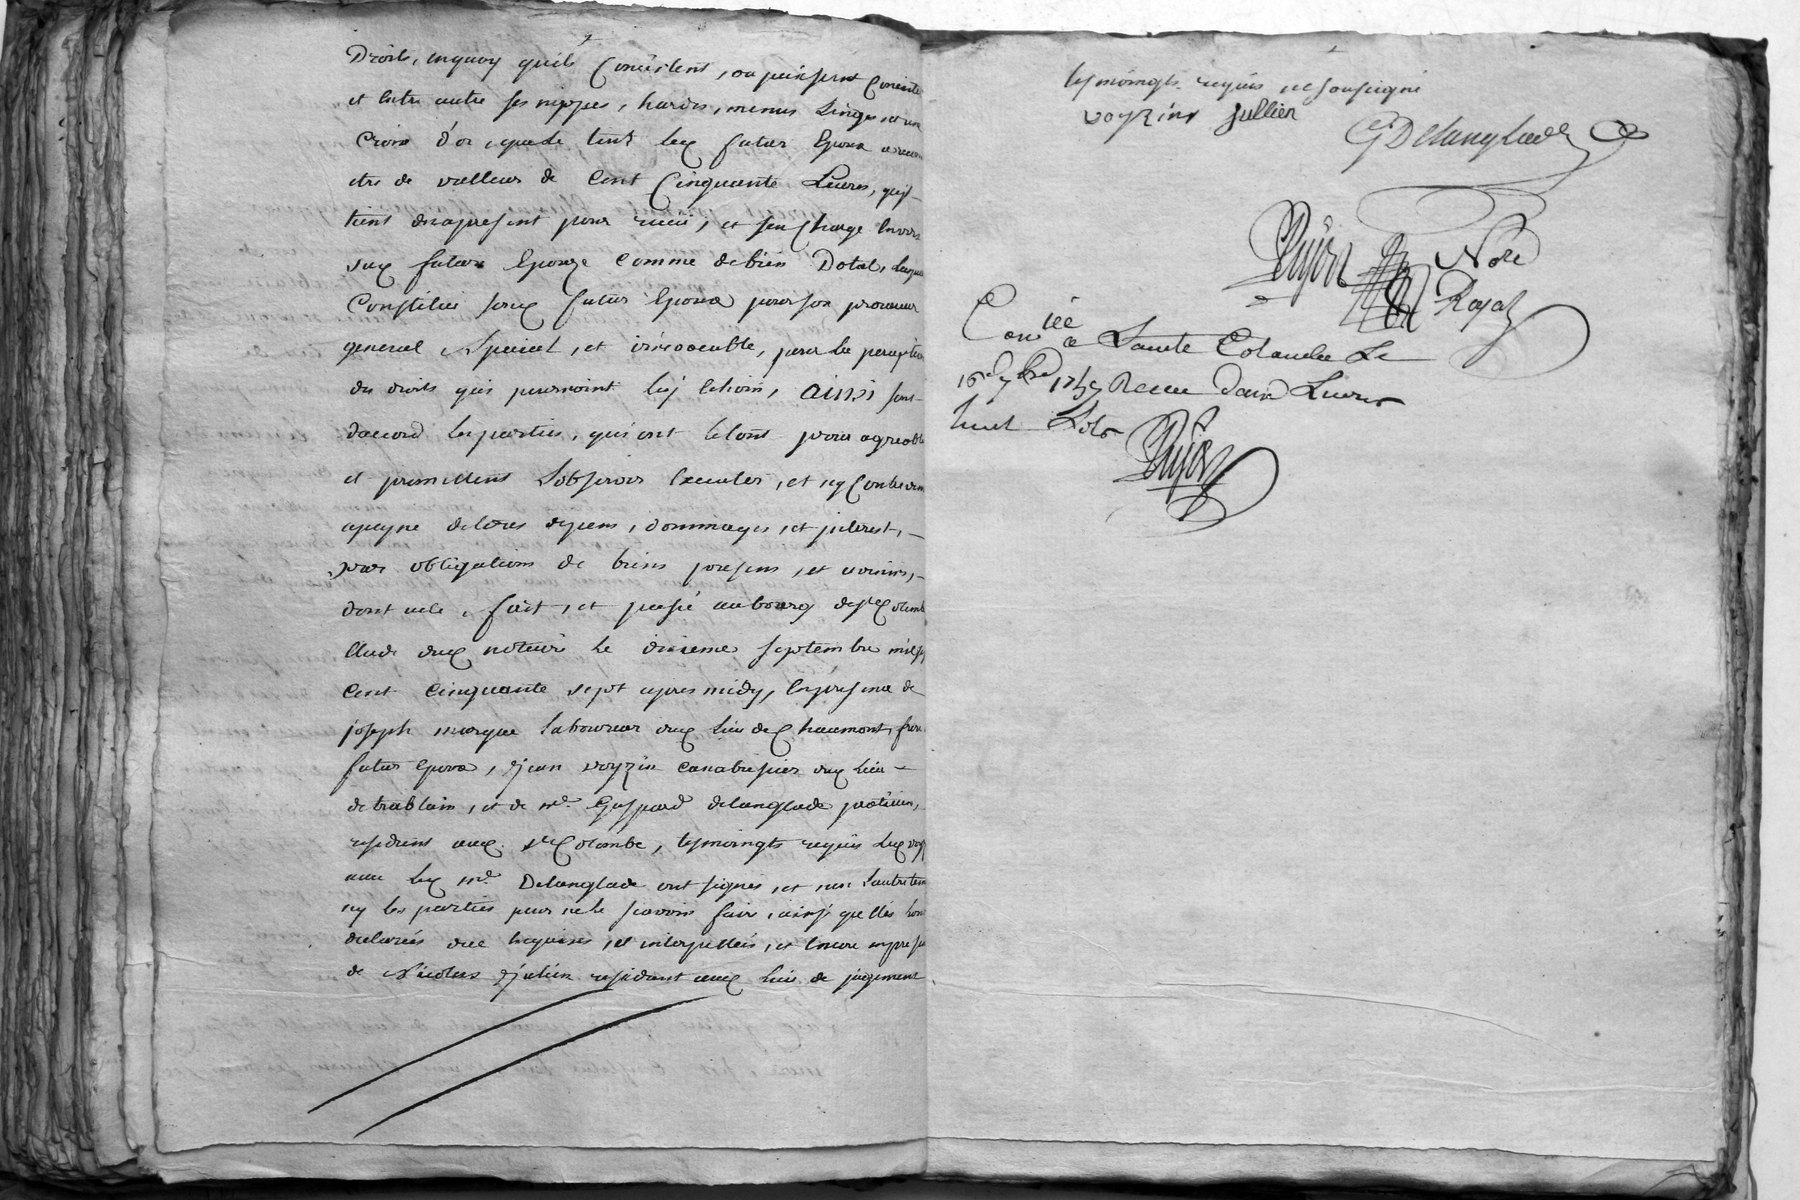 Droits, enquoy quils Concistent, ou puissent Concister
et entre autre ses nippes, hardes, menus Linges, et une
Croix d'or, que led futur Epoux a reconnu
etre de valleur de Cent Cinquante Livres, qu'il
tient des apresent pour reçus, et sen Charge Envers
lad future Epouze Comme de bien Dotal, laquelle
Constitue sond futur Epoux pour son procureur
general Special, et irrevocable, pour la perception
des droits qui pourroint luy Echoir, ainsi sont
daccord les parties, qui ont le tout pour agreable
et promettent Lobserver Executer, et ny Contrevenir
apeyne de tous depens, dommages, et interest,
par obligations de biens presens, et avenirs,
dont acte, fait, et passé au bourg de Ste Colombe
Etude dud notaire le dixieme septembre mil sept
Cent Cinquante sept apres midy, En presence de
joseph marque laboureur dud lieu de Chaumont, frere
futur Epoux, jean voyzin Canabassier dud lieu
de trablain, et de me. Gaspard delanglade praticien,
residant aud. Ste Colombe, tesmoingts requis led voyzin
avec led me. Delanglade ont signés, et non Lautre temoin
ny les parties pour ne le sçavoir faire, ainsi quelles lont
declarées due Enquises, et interpellées, et Encore en presence
de Nicolas julien residant aud lieu de jugement
tesmoingts requis et soussigné
voyzins jullien
G Delanglade
Dujon Nore
Royal
Conllée a Sainte Colombe Le
16e 7bre 1757 Receu douze Livres
huit Sols
Dujon